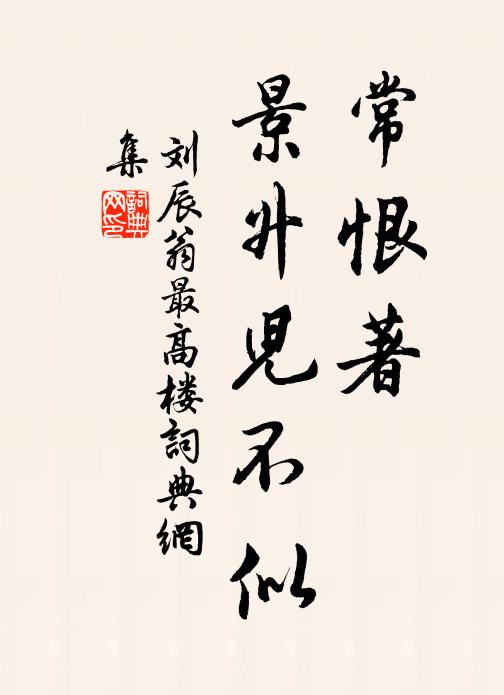 常恨著
景升児不似
刘辰翁最高楼詞典網
集
詞典网印